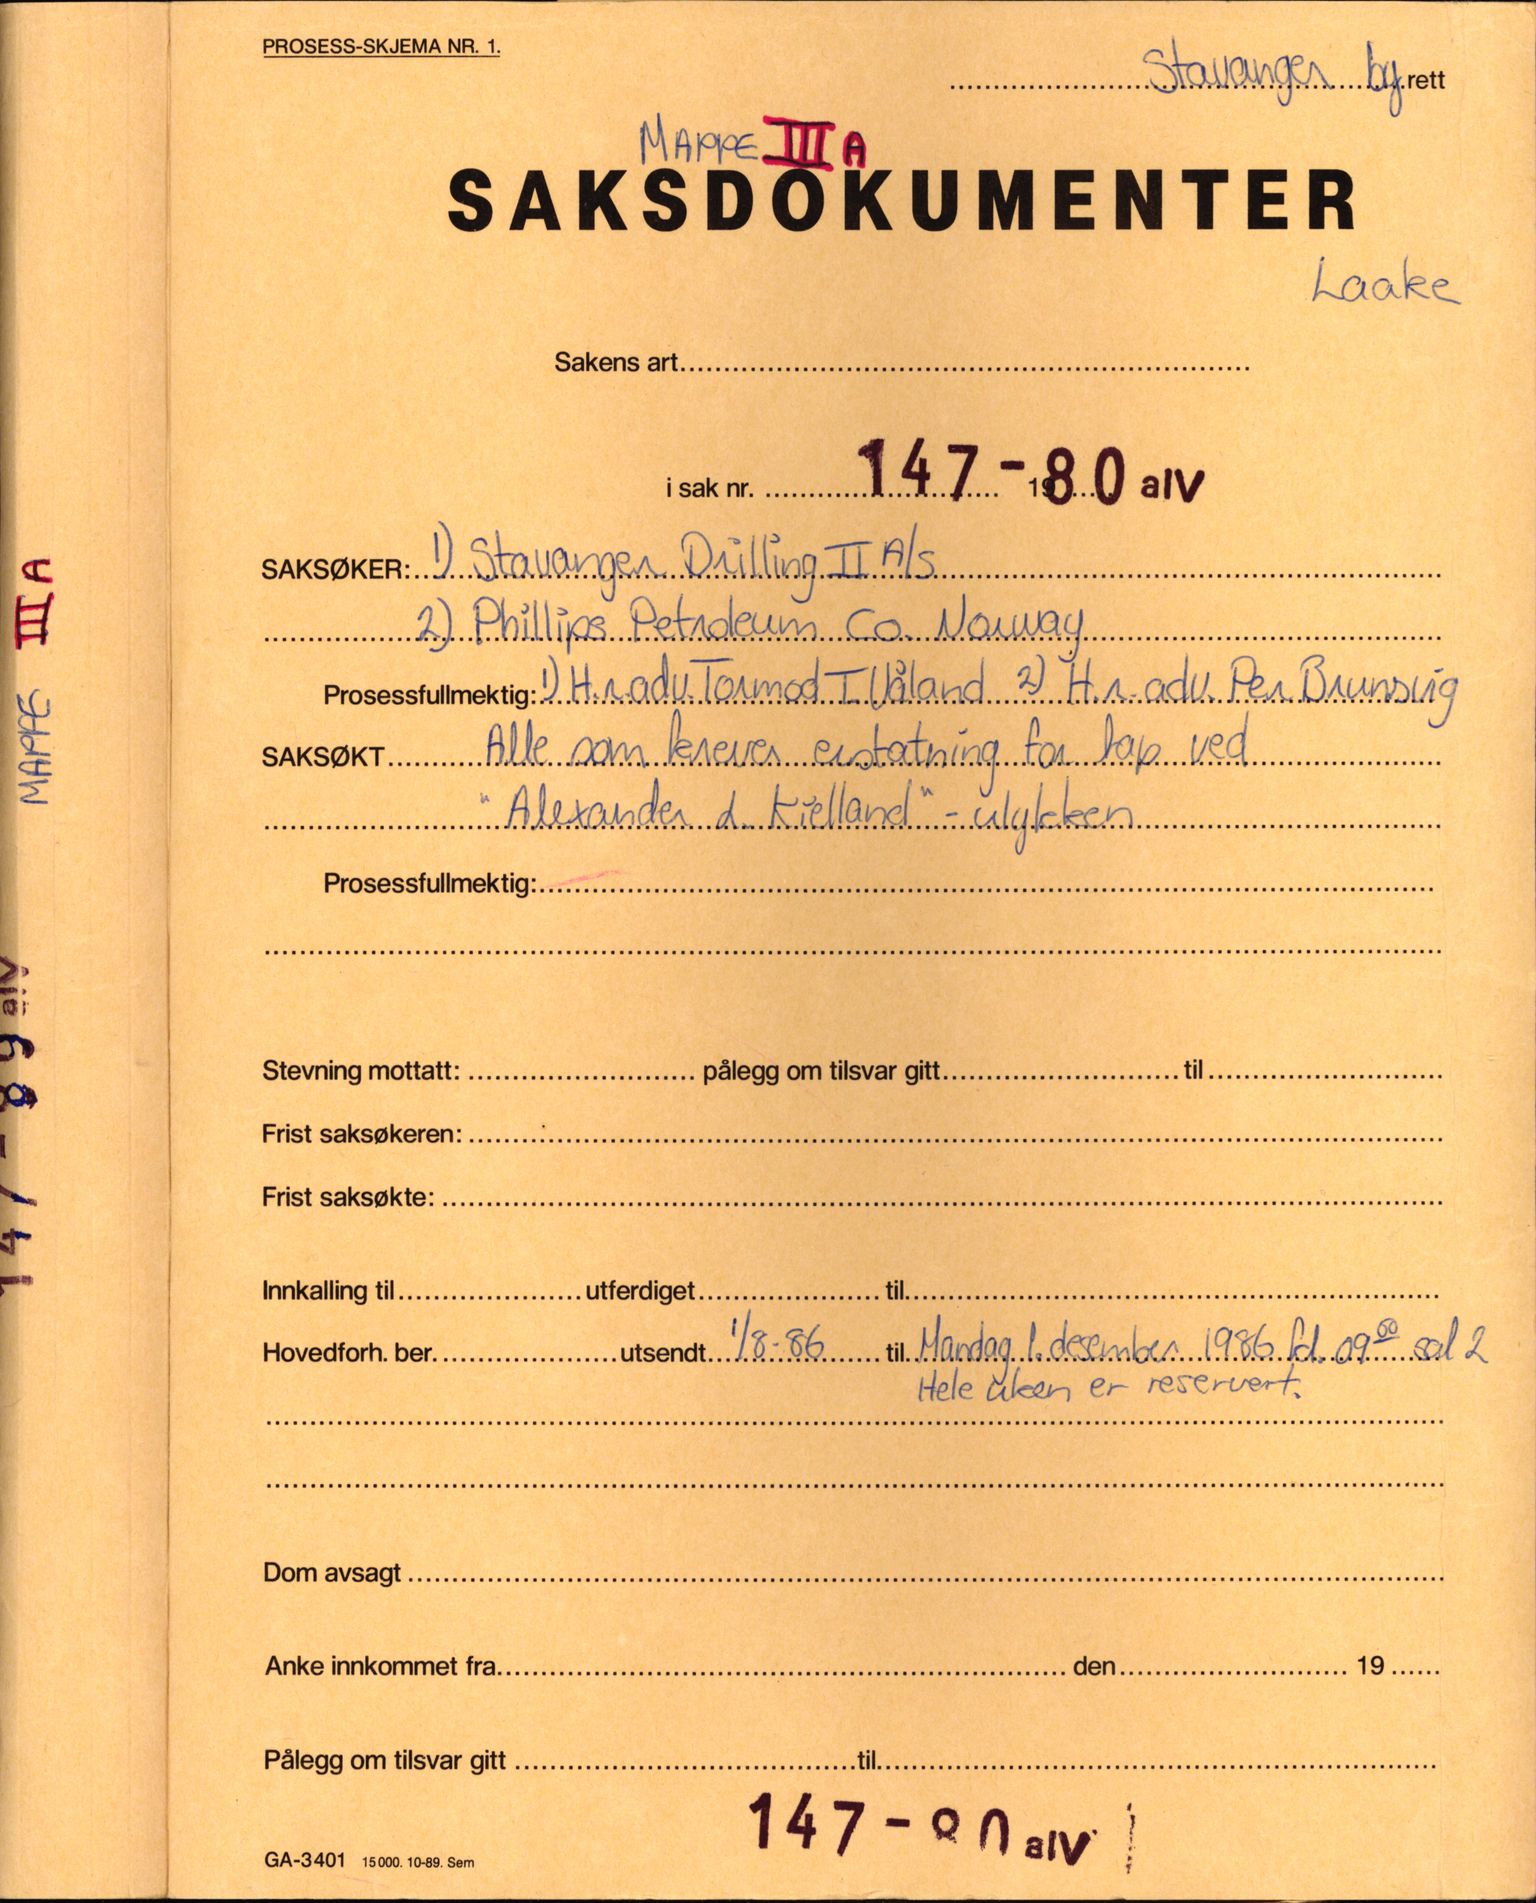 PROSESS-SKJEMA NR. 1.
Stavanger by.rett
MAPPE III A
SAKSDOKUMENTER
Laake
Sakens art
i sak nr. 147-80 alV
SAKSØKER: 1) Stavanger Drilling II A/S
2) Phillips Petroleum Co. Norway
Prosessfullmektig: 1) H.r.adv. Tormod I Våland 2) H.r.adv. Per Brunsvig
SAKSØKT Alle som krever erstatning for tap ved
"Alexander L. Kielland" - ulykken
Prosessfullmektig:
Stevning mottatt: pålegg om tilsvar gitt til
Frist saksøkeren:
Frist saksøkte:
Innkalling til utferdiget til
Hovedforh. ber. utsendt 1/8-86 til Mandag 1. desember 1986 kl. 09⁰⁰ sal 2
Hele uken er reservert.
Dom avsagt
Anke innkommet fra den 19
Pålegg om tilsvar gitt til
147-80 alV
GA-3401 15000. 10-89. Sem
MAPPE III A
147-89 alV